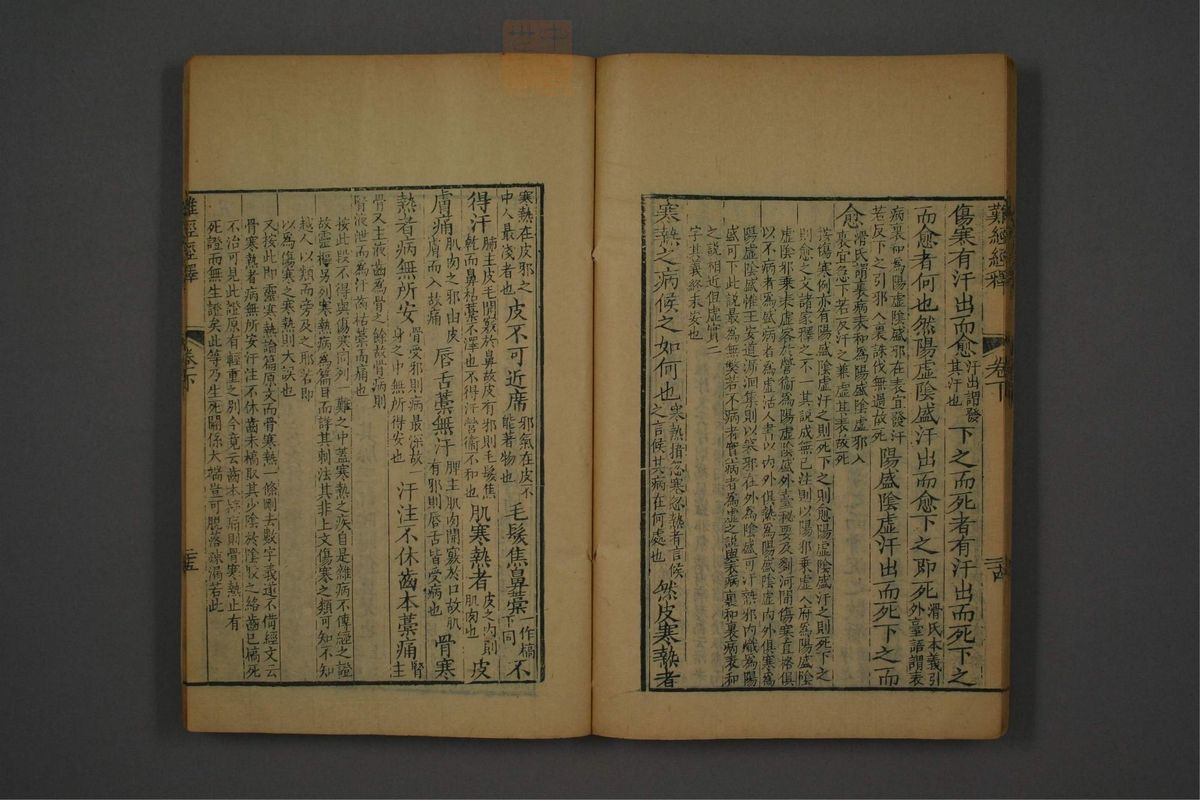 難經經釋
卷下
二十四
傷寒有汗出而愈汗出謂發其汗也下之而死者有汗出而死下之
而愈者何也然陽虛陰盛汗出而愈下之即死滑氏本義引外臺語謂表
病裏和為陽虛陰盛邪在表宜發汗若反下之引邪入裏誅伐無過故死陽盛陰虛汗出而死下之而
愈滑氏謂裏病表和為陽盛陰虛邪入裏宜急下若反汗之兼虛其表故死
按傷寒例亦有陽盛陰虛汗之則死下之則愈陽虛陰盛汗之則死下之
則愈之文諸家釋之不一其說成無已注則以陽邪乘虛入府為陽盛陰
虛陰邪乘表虛客於營衛為陽虛陰盛外臺秘要及劉河間傷寒直格俱
以不病者為盛病者為虛活人書以內外俱熱為陽盛陰虛內外俱寒為
陽虛陰盛惟王安道溯洄集則以寒邪在外為陰盛可汗熱邪內熾為陽
盛可下此說最為無弊若不病者實病者為虛之說與表病裏和裏病表和
之說相近但虛實二
字其義終未安也
寒熱之病候之如何也寒熱指忽寒忽熱者言候之言候其病在何處也然皮寒熱者
寒熱在皮邪之中人最淺者也皮不可近席邪氣在皮不能著物也毛髮焦鼻藁一作槁下同不
得汗肺主皮毛開竅於鼻故皮有邪則毛髮焦乾而鼻枯藁不澤也不得汗營衛不和也肌寒熱者皮之內則肌肉也皮
膚痛肌肉之邪由皮膚而入故痛唇舌藁無汗脾主肌肉開竅於口故肌有邪則唇舌皆受病也骨寒
熱者病無所安骨受邪則病最深故一身之中無所得安也汗注不休齒本藁痛腎主
骨又主液齒為骨之餘故骨病則腎液泄而為汗齒枯藁而痛也
按此段不得與傷寒同列一難之中蓋寒熱之疾自是雜病不傳經之證
故靈樞另列寒熱病為篇目而詳其刺法其非上文傷寒之類可知不知
越人以類而旁及之邪若即
以為傷寒之寒熱則大誤也
又按此即靈寒熱論篇原文而骨寒熱一條刪去數字義遂不備經文云
骨寒熱者病無所安汗注不休齒未槁取其少陰於陰股之絡齒已槁死
不治可見此證原有輕重之別今竟云齒本槁痛則骨寒熱止有
死證而無生證矣此等乃生死關係大端豈可脫落疎漏若此
難經經釋
卷下
二十五